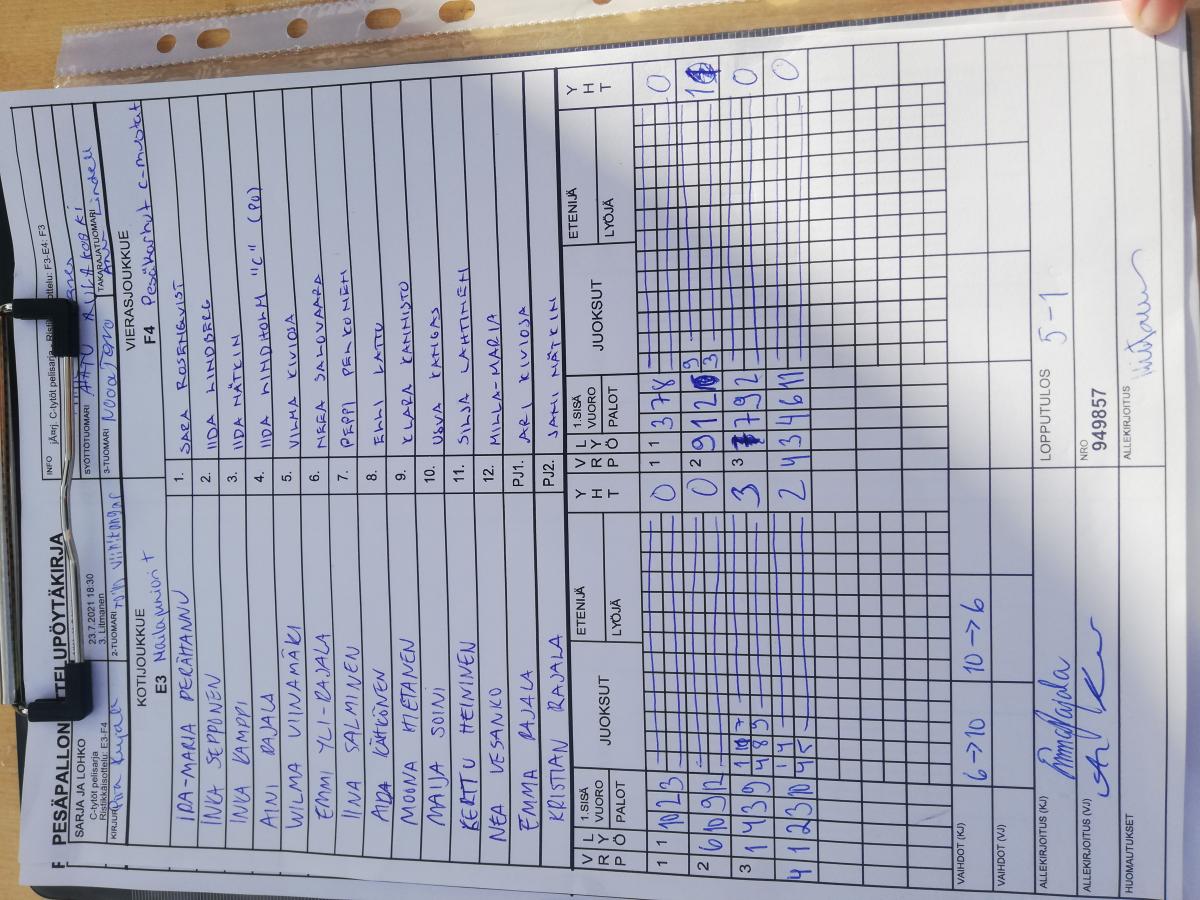 PESÄPALLON OTTELUPÖYTÄKIRJA
SARJA JA LOHKO
C-tytöt pelisarja
Ristikkäisottelu: E3-F4
23.7.2021 18:30
3. Litmanen
INFO
C-tytöt pelisarja - F3-E4: F3
KIRJURI
2-TUOMARI
SYÖTTÖTUOMARI
3-TUOMARI
TAKARAJATUOMARI
KOTIJOUKKUE
E3
VIERASJOUKKUE
F4 Pesäkarhut C-mustat
IDA-MARIA PERÄHANNU 1. SARA ROSENQVIST
INKA SEPPONEN 2. IIDA LINDBERG
INKA KAMPPI 3. IIDA NÄTKIN
AINI RAJALA 4. IIDA LINDHOLM "C" (PO)
WILMA VIINAMÄKI 5. VILMA KIVIOJA
EMMI YLI-RAJALA 6. NEEA SALOVAARA
IINA SALMINEN 7. PEPPI PELKONEN
AIDA KÄHKÖNEN 8. ELLI LATU
MOONA HIETANEN 9. KLARA KANNISTO
MAIJA SOINI 10. USVA KANGAS
KERTTU HEININEN 11. SILJA LAHTINEN
NEA VESANKO 12. MILLA-MARIA
EMMA RAJALA PJ1. ARI KIVIOJA
KRISTIAN RAJALA PJ2. JANI NÄTKIN
V R P L Y Ö 1.SISÄ VUORO PALOT JUOKSUT ETENIJÄ LYÖJÄ Y H T V R P L Y Ö 1.SISÄ VUORO PALOT JUOKSUT ETENIJÄ LYÖJÄ Y H T
1 1 10 2 3 0 1 1 3 7 8 0
2 6 10 9 12 0 2 9 12 9 3 1
3 1 4 3 9 3 3 7 9 2 0
4 1 2 3 10 2 4 3 4 6 11 0
VAIHDOT (KJ) 6→10 10→6
VAIHDOT (VJ)
ALLEKIRJOITUS (KJ) Emma Rajala
LOPPUTULOS 5-1
ALLEKIRJOITUS (VJ)
NRO
949857
HUOMAUTUKSET
ALLEKIRJOITUS